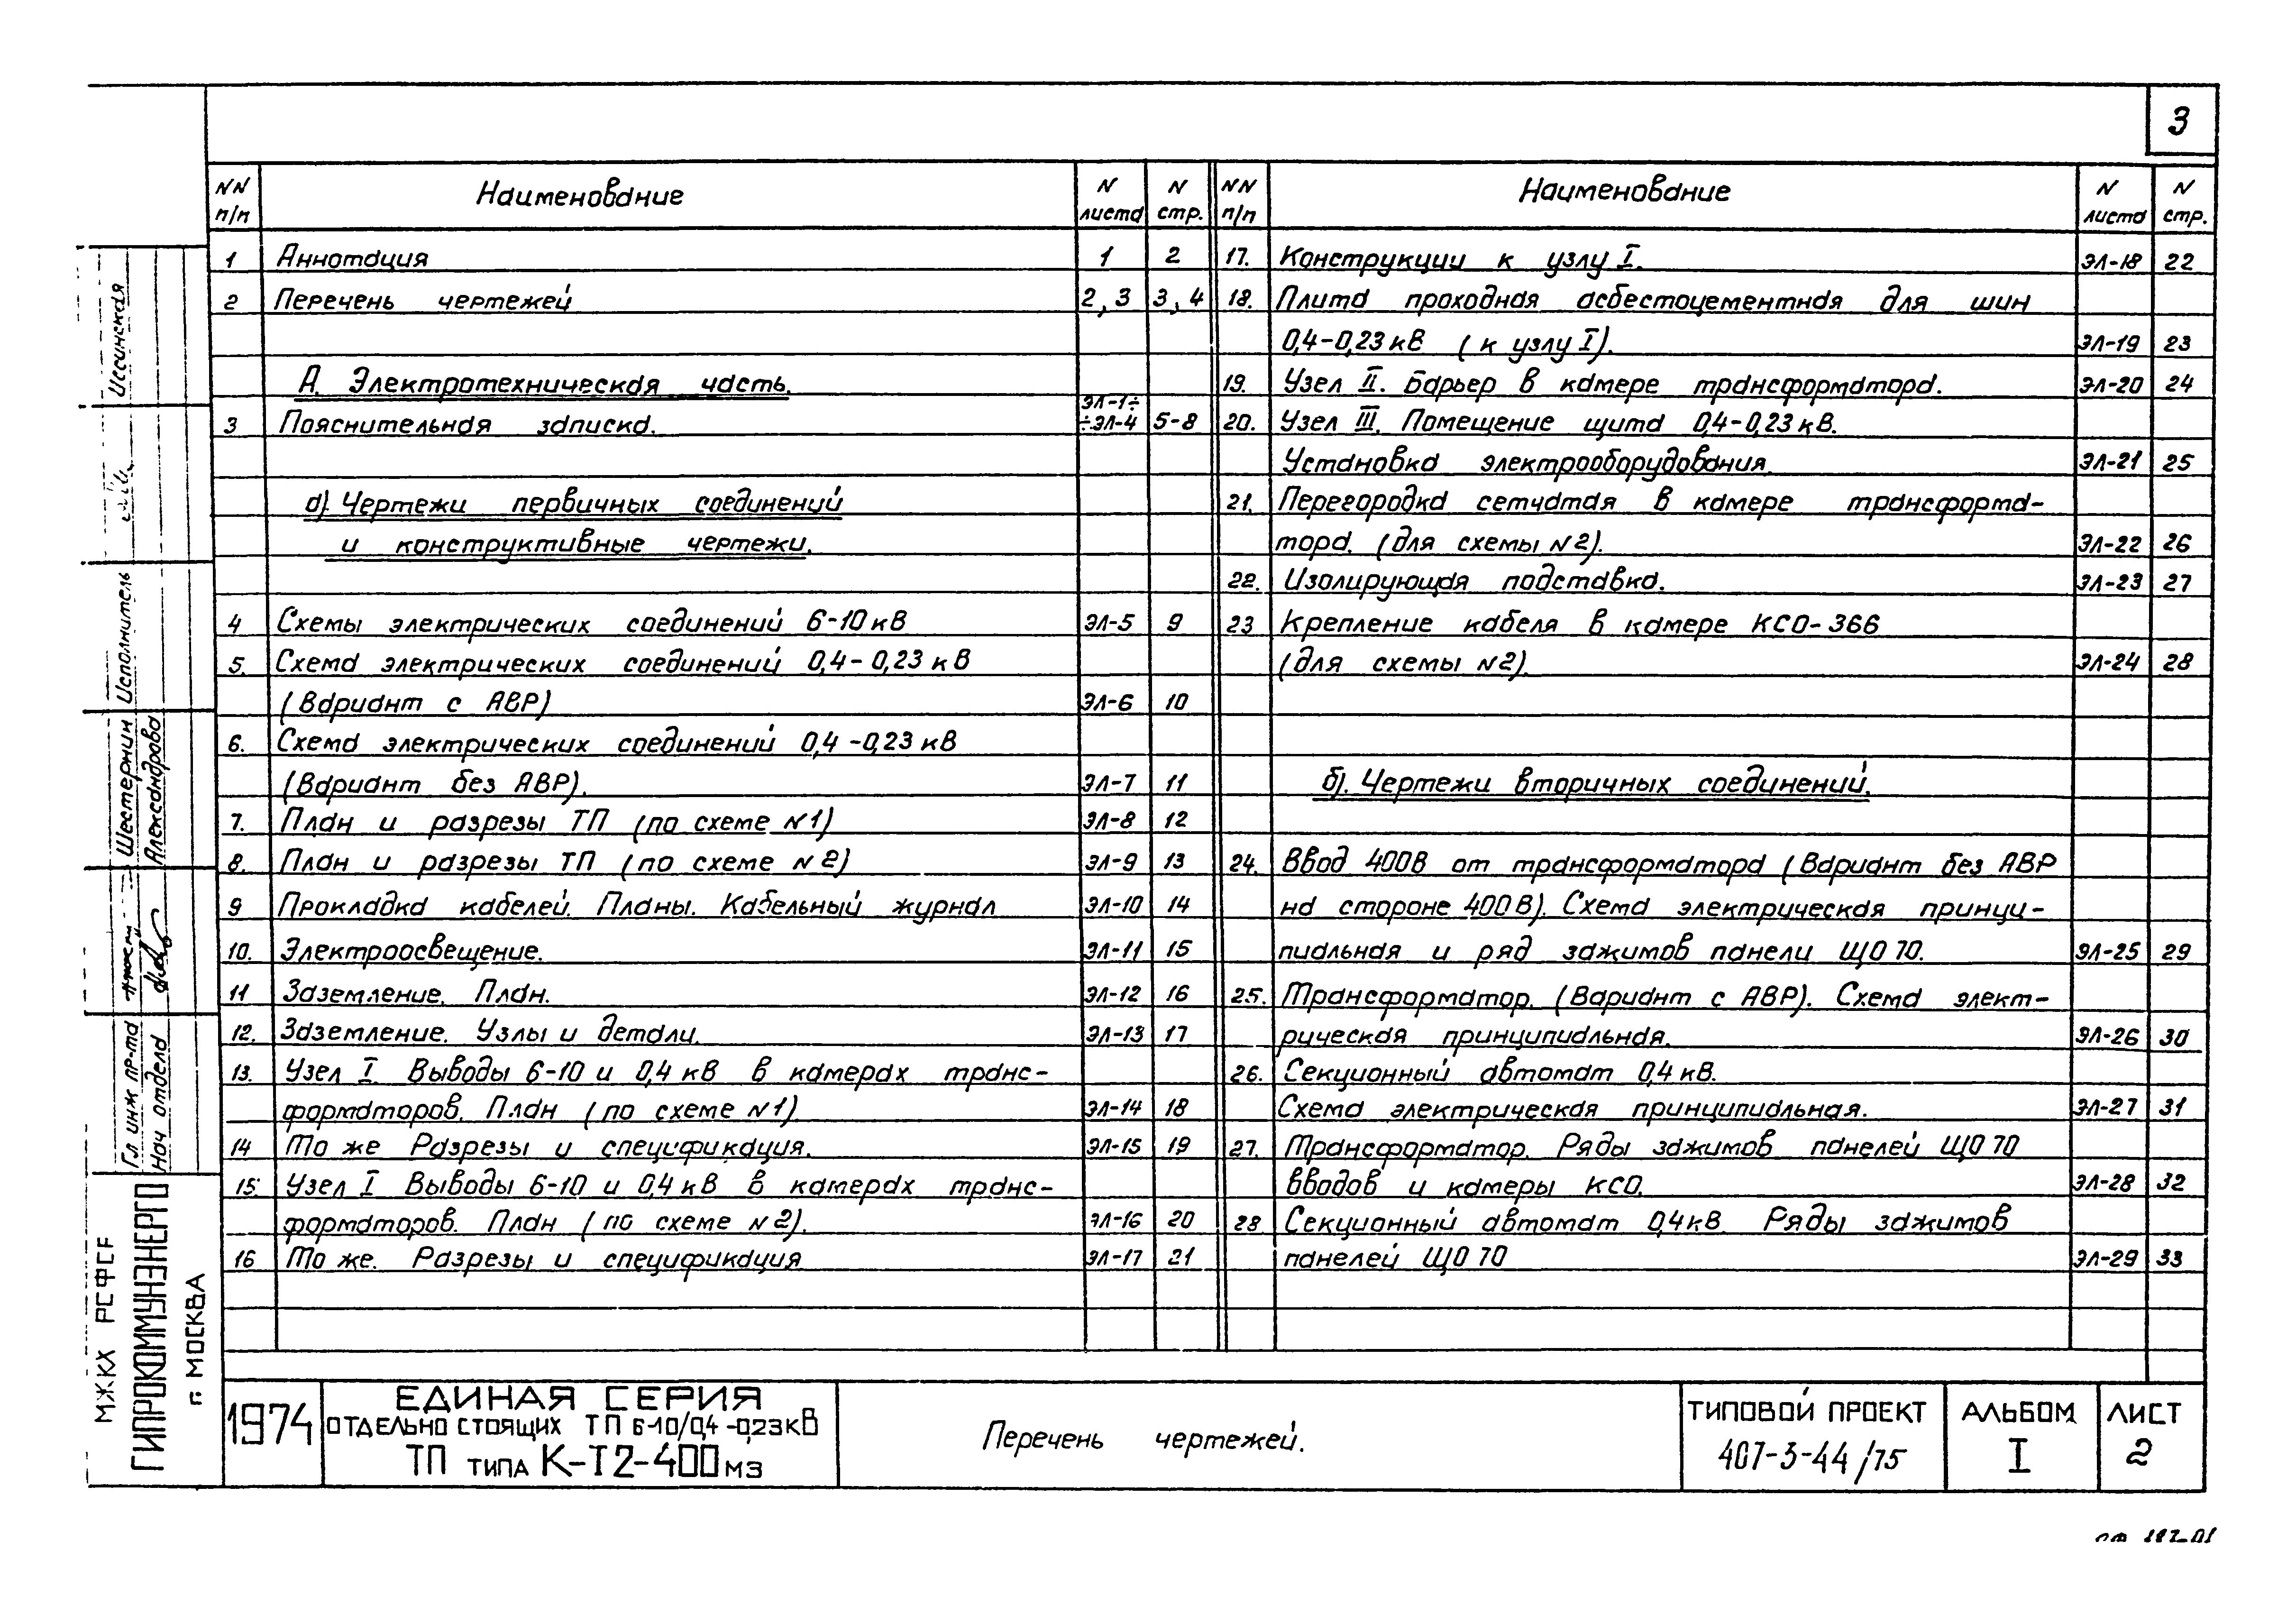 3
NN п/п Наименование N листа N стр.
1 Аннотация 1 2
2 Перечень чертежей 2,3 3,4
А. Электротехническая часть.
3 Пояснительная записка. ЭЛ-1÷ ÷ЭЛ-4 5-8
а). Чертежи первичных соединений
и конструктивные чертежи.
4 Схемы электрических соединений 6-10кВ ЭЛ-5 9
5. Схема электрических соединений 0,4-0,23кВ
(Вариант с АВР) ЭЛ-6 10
6. Схема электрических соединений 0,4-0,23кВ
(Вариант без АВР). ЭЛ-7 11
7. План и разрезы ТП (по схеме N1) ЭЛ-8 12
8. План и разрезы ТП (по схеме N2) ЭЛ-9 13
9 Прокладка кабелей. Планы. Кабельный журнал ЭЛ-10 14
10. Электроосвещение. ЭЛ-11 15
11 Заземление. План. ЭЛ-12 16
12. Заземление. Узлы и детали. ЭЛ-13 17
13. Узел I. Выводы 6-10 и 0,4кВ в камерах транс-
форматоров. План (по схеме N1) ЭЛ-14 18
14 То же Разрезы и спецификация. ЭЛ-15 19
15. Узел I Выводы 6-10 и 0,4кВ в камерах транс-
форматоров. План (по схеме N2). ЭЛ-16 20
16 То же. Разрезы и спецификация ЭЛ-17 21
NN п/п Наименование N листа N стр.
17. Конструкции к узлу I. ЭЛ-18 22
18. Плита проходная асбестоцементная для шин
0,4-0,23кВ (к узлу I). ЭЛ-19 23
19. Узел II. Барьер в камере трансформатора. ЭЛ-20 24
20. Узел III. Помещение щита 0,4-0,23кВ.
Установка электрооборудования. ЭЛ-21 25
21. Перегородка сетчатая в камере трансформа-
тора. (для схемы N2). ЭЛ-22 26
22. Изолирующая подставка. ЭЛ-23 27
23 Крепление кабеля в камере КСО-366
(для схемы N2). ЭЛ-24 28
б). Чертежи вторичных соединений.
24. Ввод 400В от трансформатора (Вариант без АВР
на стороне 400В). Схема электрическая принци-
пиальная и ряд зажимов панели ЩО70. ЭЛ-25 29
25. Трансформатор. (Вариант с АВР). Схема элект-
рическая принципиальная. ЭЛ-26 30
26. Секционный автомат 0,4кВ.
Схема электрическая принципиальная. ЭЛ-27 31
27. Трансформатор. Ряды зажимов панелей ЩО70
вводов и камеры КСО. ЭЛ-28 32
28 Секционный автомат 0,4кВ. Ряды зажимов
панелей ЩО70 ЭЛ-29 33
Иссинская
Исполнитель
Шестернин
Александрова
Гл инж пр-та
Нач отдела
МЖКХ РСФСР
ГИПРОКОММУНЭНЕРГО
г. МОСКВА
1974
ЕДИНАЯ СЕРИЯ
ОТДЕЛЬНО СТОЯЩИХ ТП 6-10/0,4-0,23кВ
ТП ТИПА К-Т2-400мз
Перечень чертежей.
ТИПОВОЙ ПРОЕКТ
407-3-44/75
АЛЬБОМ
I
ЛИСТ
2